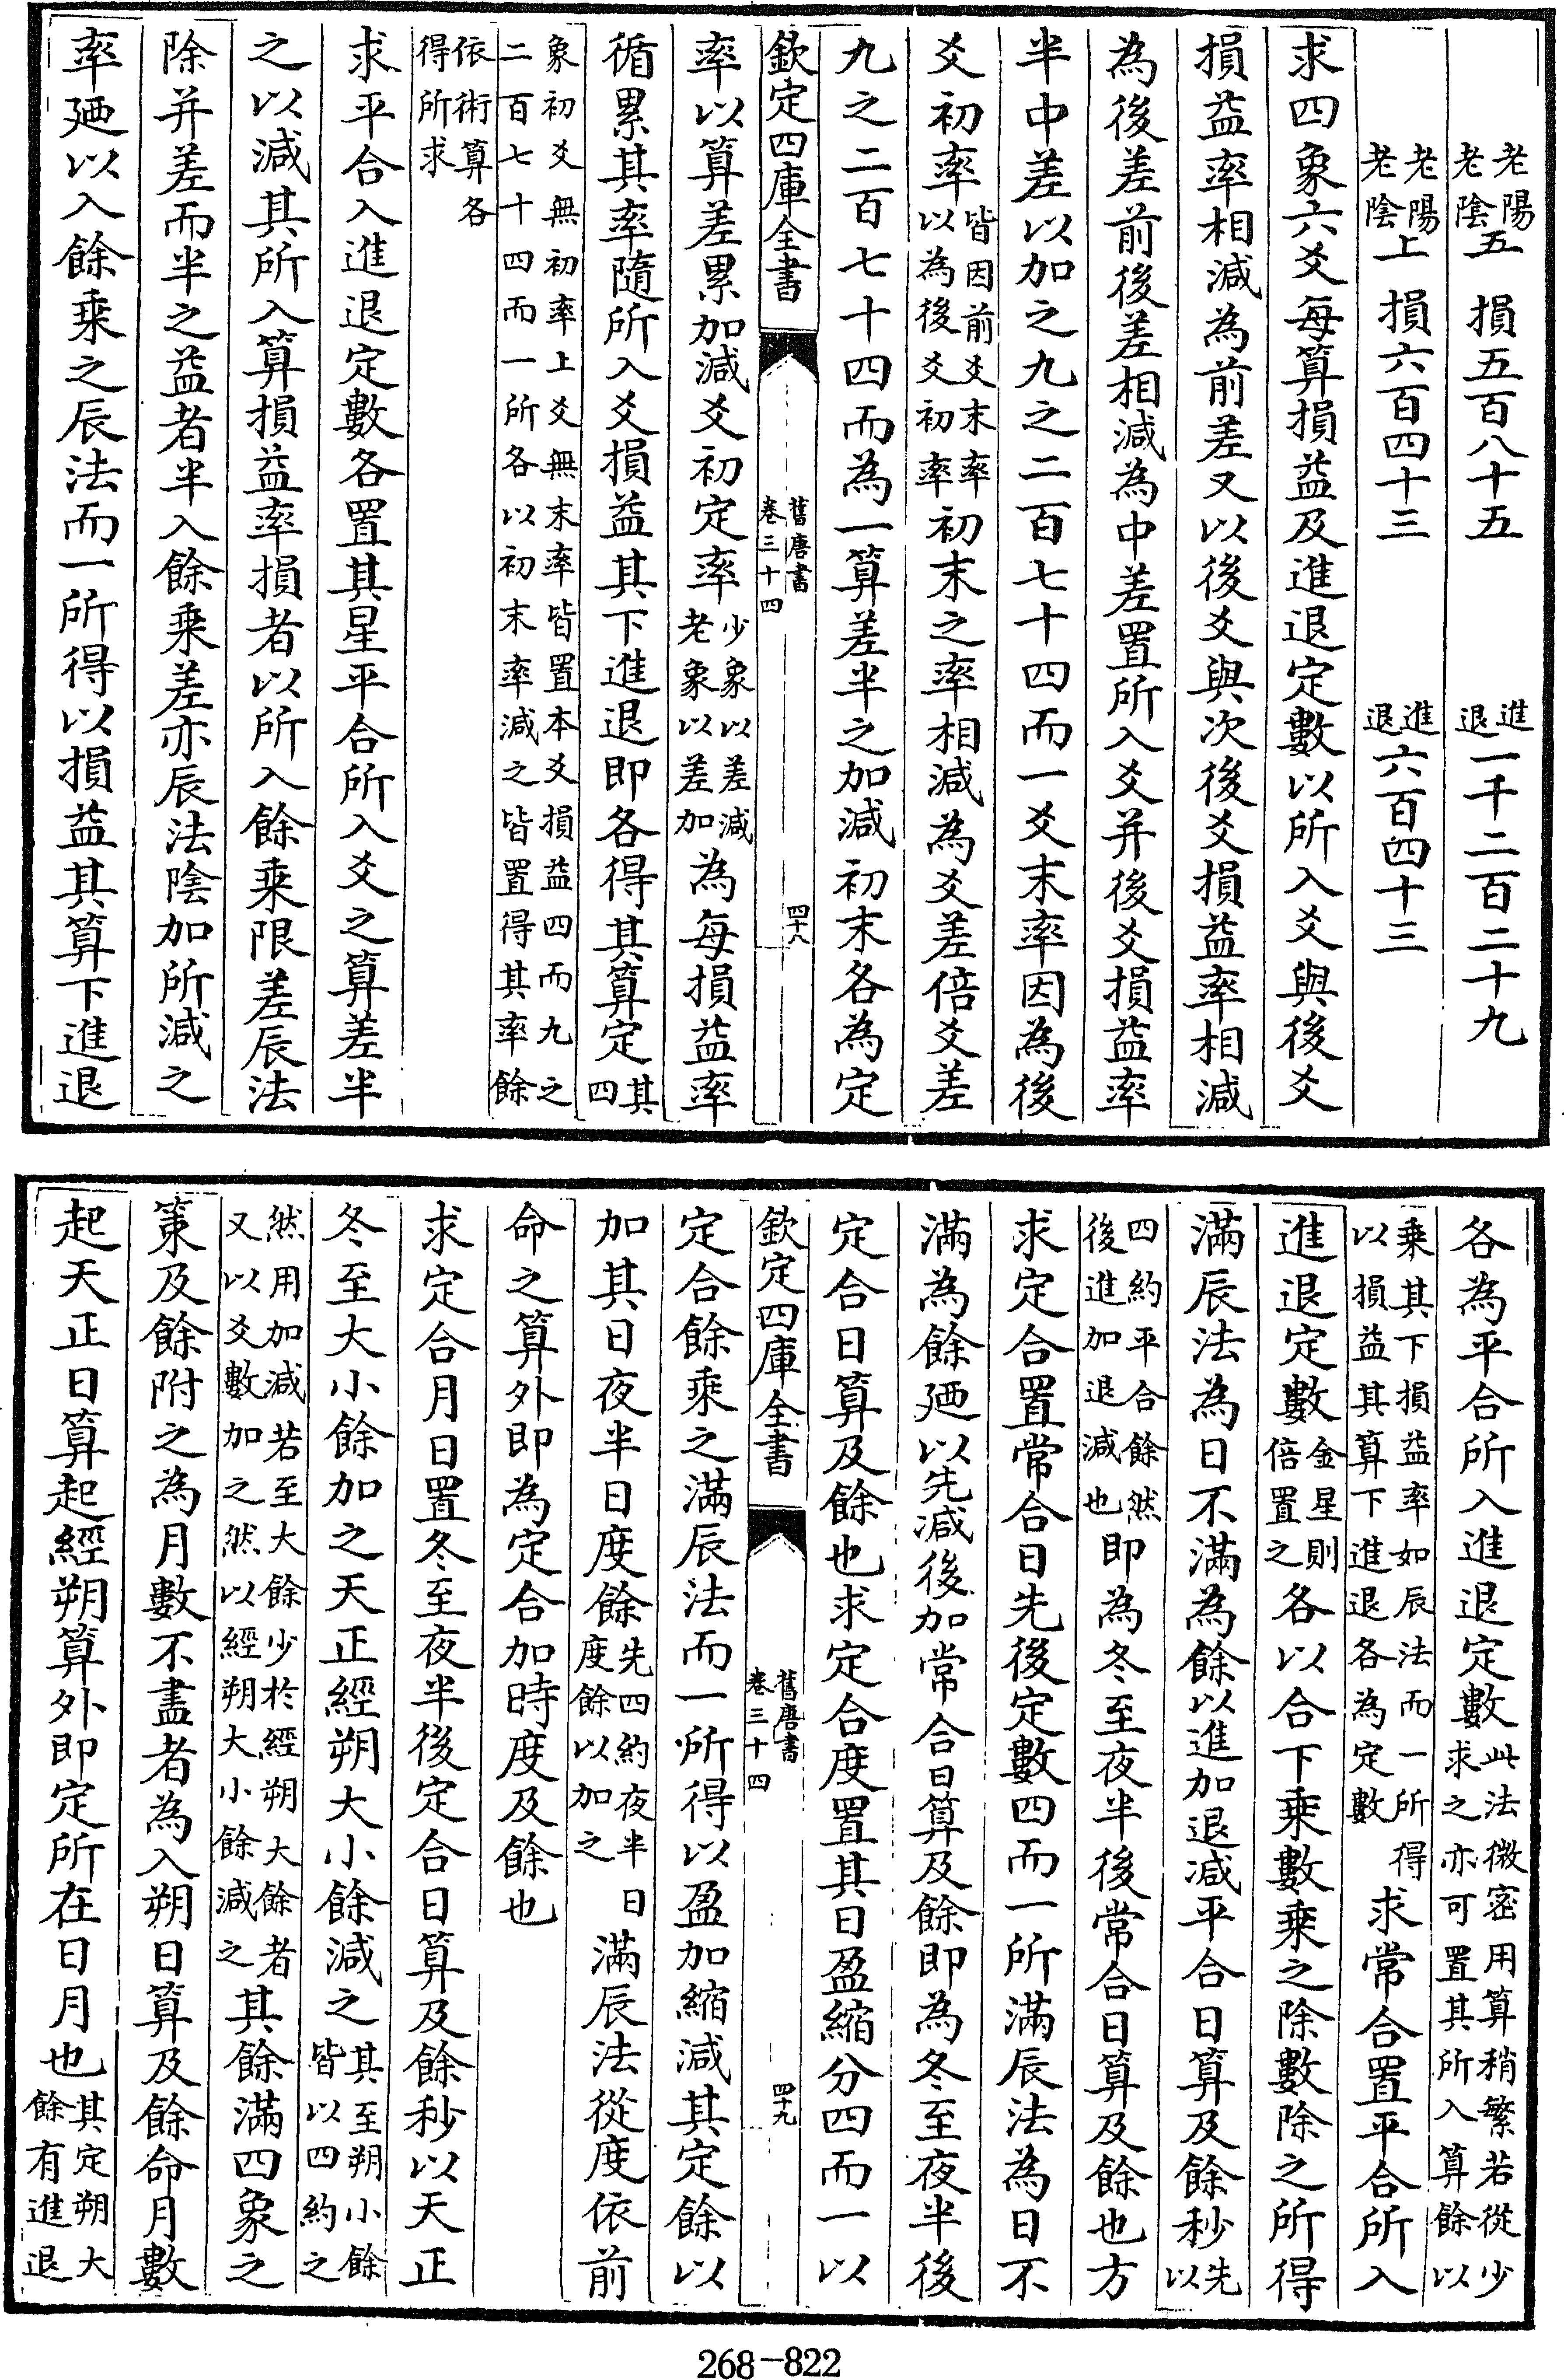 老陽老陰五　損五百八十五　進退一千二百二十九
老陽老陰上　損六百四十三　進退六百四十三
求四象六爻每算損益及進退定數以所入爻與後爻
損益率相減為前差又以後爻與次後爻損益率相減
為後差前後差相減為中差置所入爻并後爻損益率
半中差以加之九之二百七十四而一爻末率因為後
爻初率皆因前爻末率以為後爻初率初末之率相減為爻差倍爻差
九之二百七十四而為一算差半之加減初末各為定
欽定四庫全書　舊唐書卷三十四　四十八
率以算差累加減爻初定率少象以差減老象以差加為每損益率
循累其率隨所入爻損益其下進退即各得其算定其四
象初爻無初率上爻無末率皆置本爻損益四而九之二百七十四而一所各以初末率減之皆置得其率餘
依術算各得所求
求平合入進退定數各置其星平合所入爻之算差半
之以減其所入算損益率損者以所入餘乗限差辰法
除并差而半之益者半入餘乗差亦辰法隂加所減之
率廼以入餘乗之辰法而一所得以損益其算下進退
各為平合所入進退定數此法微密用算稍繁若從少求之亦可置其所入算餘以
乗其下損益率如辰法而一所得以損益其算下進退各為定數　求常合置平合所入
進退定數金星則倍置之各以合下乗數乗之除數除之所得
滿辰法為日不滿為餘以進加退減平合日算及餘秒先以
四約平合餘然後進加退減也即為冬至夜半後常合日算及餘也方
求定合置常合日先後定數四而一所滿辰法為日不
滿為餘廼以先減後加常合日算及餘即為冬至夜半後
定合日算及餘也求定合度置其日盈縮分四而一以
欽定四庫全書　舊唐書卷三十四　四十九
定合餘乘之滿辰法而一所得以盈加縮減其定餘以
加其日夜半日度餘先四約夜半日度餘以加之滿辰法從度依前
命之算外即為定合加時度及餘也
求定合月日置冬至夜半後定合日算及餘秒以天正
冬至大小餘加之天正經朔大小餘減之其至朔小餘皆以四約之
然用加減若至大餘少於經朔大餘者又以爻數加之然以經朔大小餘減之其餘滿四象之
策及餘附之為月數不盡者為入朔日算及餘命月數
起天正日算起經朔算外即定所在日月也其定朔大餘有進退
268-822